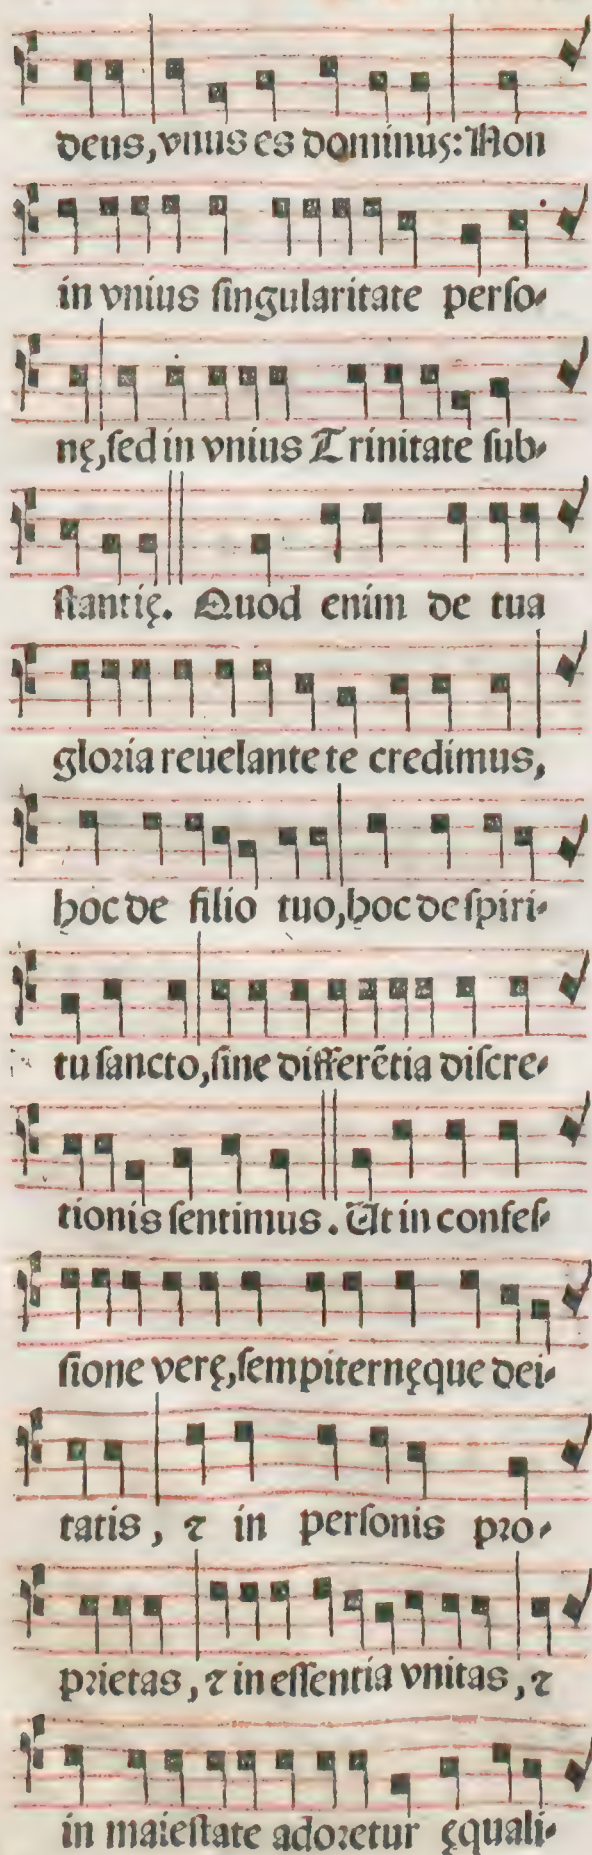 deus, vnus es dominus: Non
in vnius ſingularitate perſo-
nę, ſed in vnius Trinitate ſub-
ſtantię. Quod enim de tua
gloꝛia reuelante te credimus,
hoc de filio tuo, hoc de ſpiri-
tu ſancto, ſine differētia diſcre-
tionis ſentimus. Ut in confeſ-
ſione verę, ſempiternęque dei-
tatis, ⁊ in perſonis pꝛo-
pꝛietas, ⁊ in eſſentia vnitas, ⁊
in maieſtate adoꝛetur ęquali-